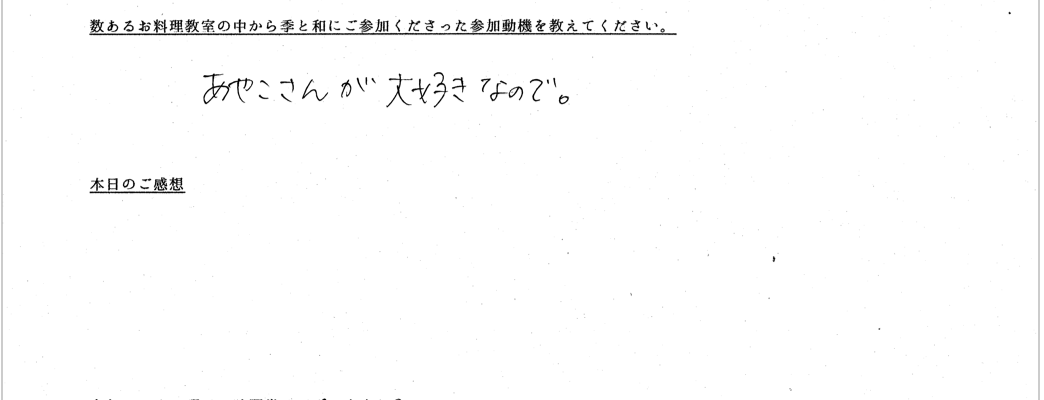 数あるお料理教室の中から季と和にご参加くださった参加動機を教えてください。
あやこさんが大好きなので。
本日のご感想